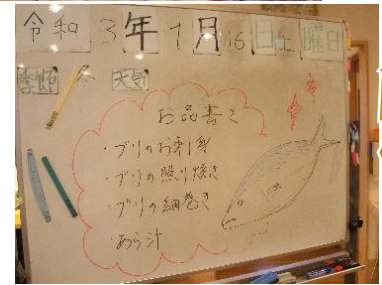 令和3年1月16日土曜日
季節 天気
お品書き
・ブリのお刺身
・ブリの照り焼き
・ブリの細巻き
・あら汁